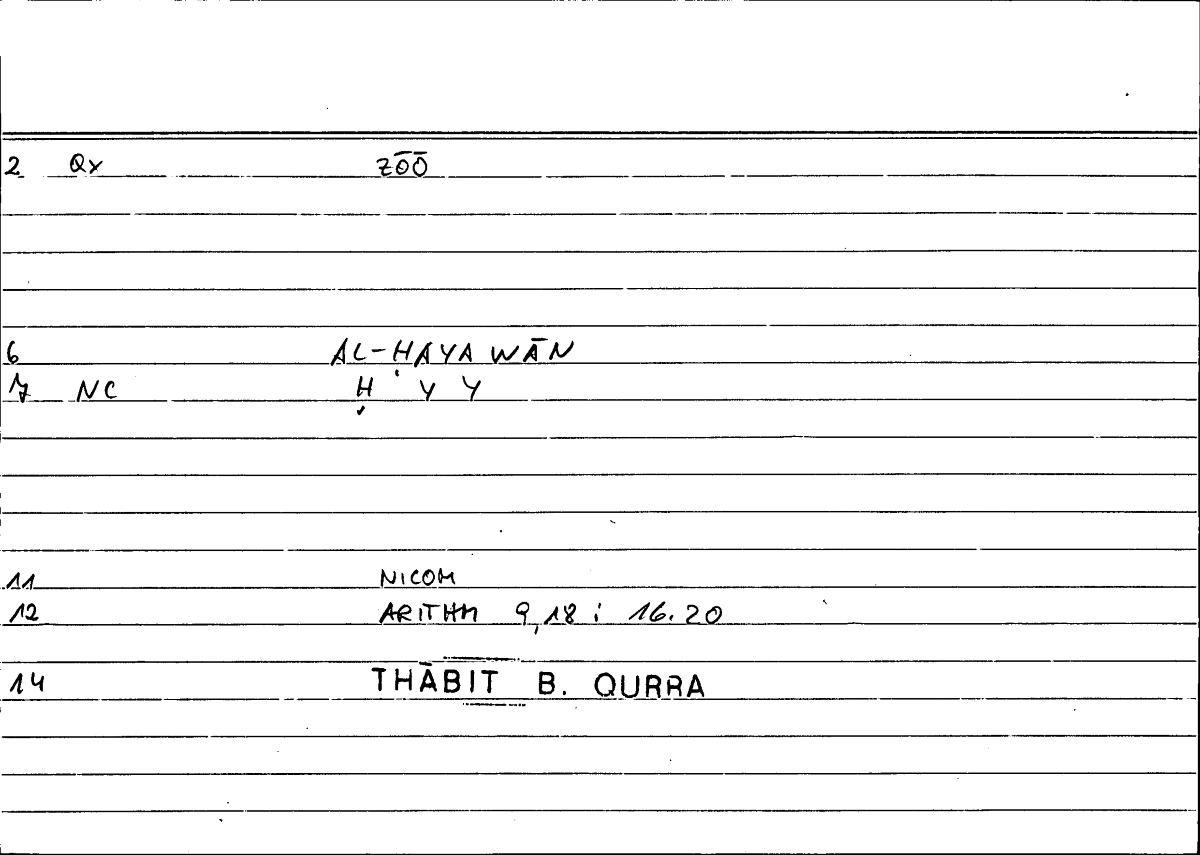 2 Qx ZŌŌ
6 AL-ḤAYAWĀN
7 NC Ḥ Y Y
11 NICOM
12 ARITHM 9,18 : 16.20
14 THĀBIT B. QURRA